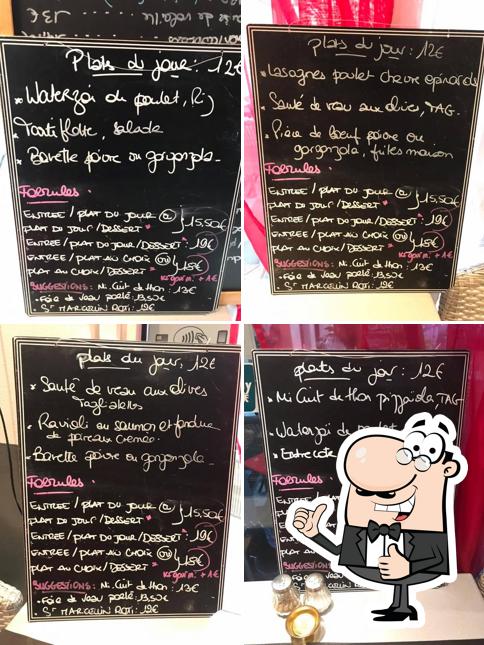 Plats du jour : 12€
* Waterzoï de poulet, Riz
* Tartiflette, salade
* Bavette poivre ou gorgonzola
Formules :
ENTREE / PLAT DU JOUR ou
PLAT DU JOUR / DESSERT
15,50€
ENTREE / PLAT DU JOUR / DESSERT : 19€
ENTREE / PLAT AU CHOIX ou
PLAT AU CHOIX / DESSERT
SUGGESTIONS : Mi Cuit de thon : 13€
• Foie de veau poêlé : 13,50€
St MARCELLIN ROTI : 12€
plats du jour : 12€
* Lasagnes poulet chèvre épinards
* Sauté de veau aux olives, TAG.
* Pièce de boeuf poivre ou
gorgonzola, frites maison
Formules :
ENTREE / PLAT DU JOUR ou
PLAT DU JOUR / DESSERT
15,50€
ENTREE / PLAT DU JOUR / DESSERT : 19€
ENTREE / PLAT AU CHOIX ou
PLAT AU CHOIX / DESSERT
SUGGESTIONS : Mi Cuit de thon : 13€
• Foie de veau poêlé : 13,50€
St MARCELLIN ROTI : 12€
plats du jour, 12€
* Sauté de veau aux olives
Tagliatelles
* Ravioli au saumon et fondue
de poireaux crémée.
* Bavette poivre ou gorgonzola
Formules :
ENTREE / PLAT DU JOUR ou
PLAT DU JOUR / DESSERT
15,50€
ENTREE / PLAT DU JOUR / DESSERT : 19€
ENTREE / PLAT AU CHOIX ou
PLAT AU CHOIX / DESSERT
SUGGESTIONS : Mi Cuit de thon : 13€
• Foie de veau poêlé : 13,50€
St MARCELLIN ROTI : 12€
plats du jour : 12€
* Mi Cuit de thon pizzaiola, TAG
* Waterzoï de poulet
* Entrecôte
Formules